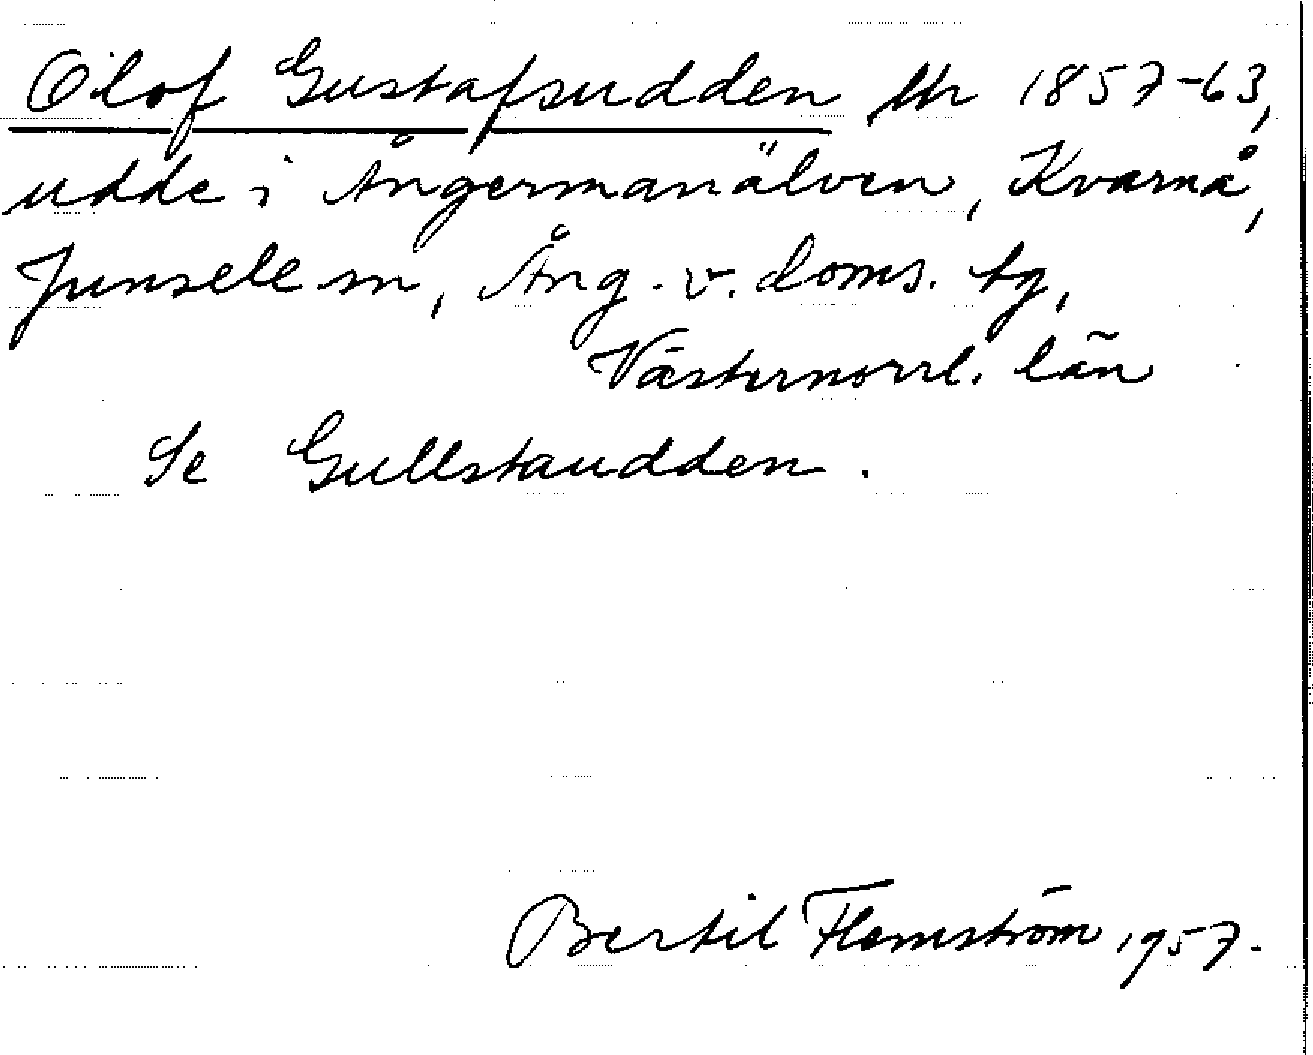 Olof Gustafsudden lth 1857-63,
udde i Ångermanälven, Kvarnå,
Junsele sn, Ång. v. doms. tg,
Västernorrl. län
Se Gullstaudden.
Bertil Flemström 1957.